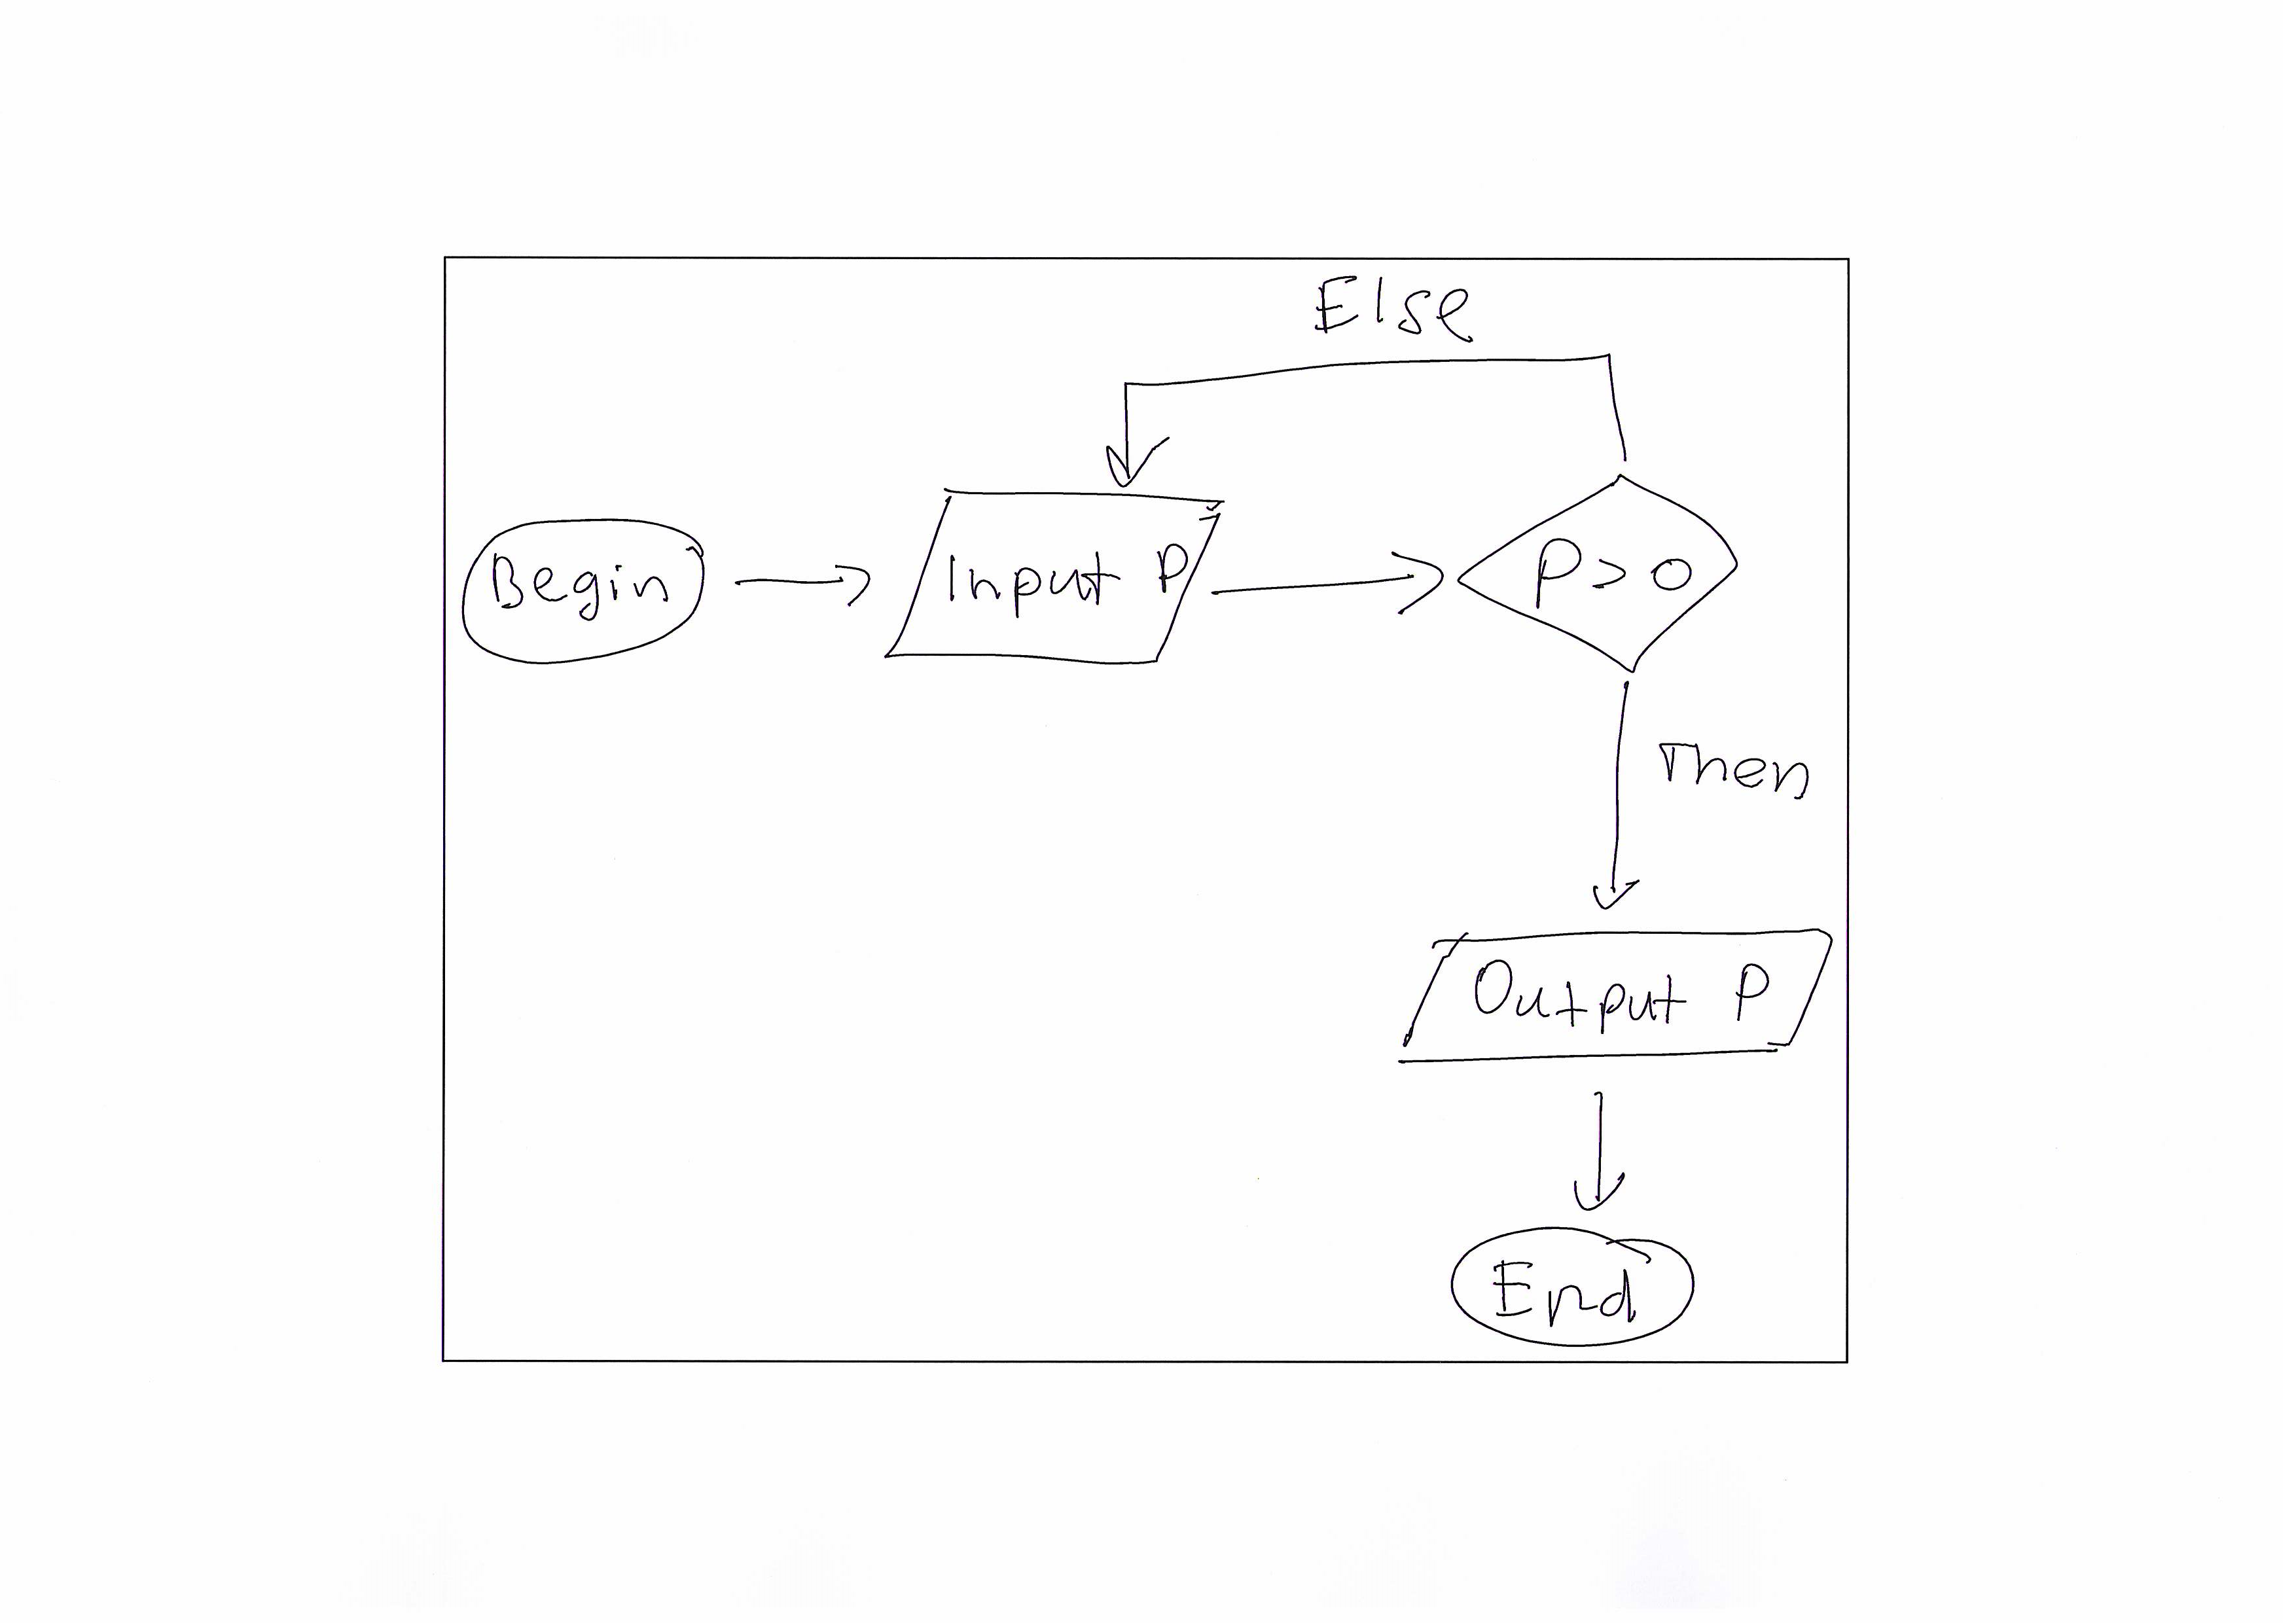 Else
Begin
Input P
P > 0
Then
Output P
End